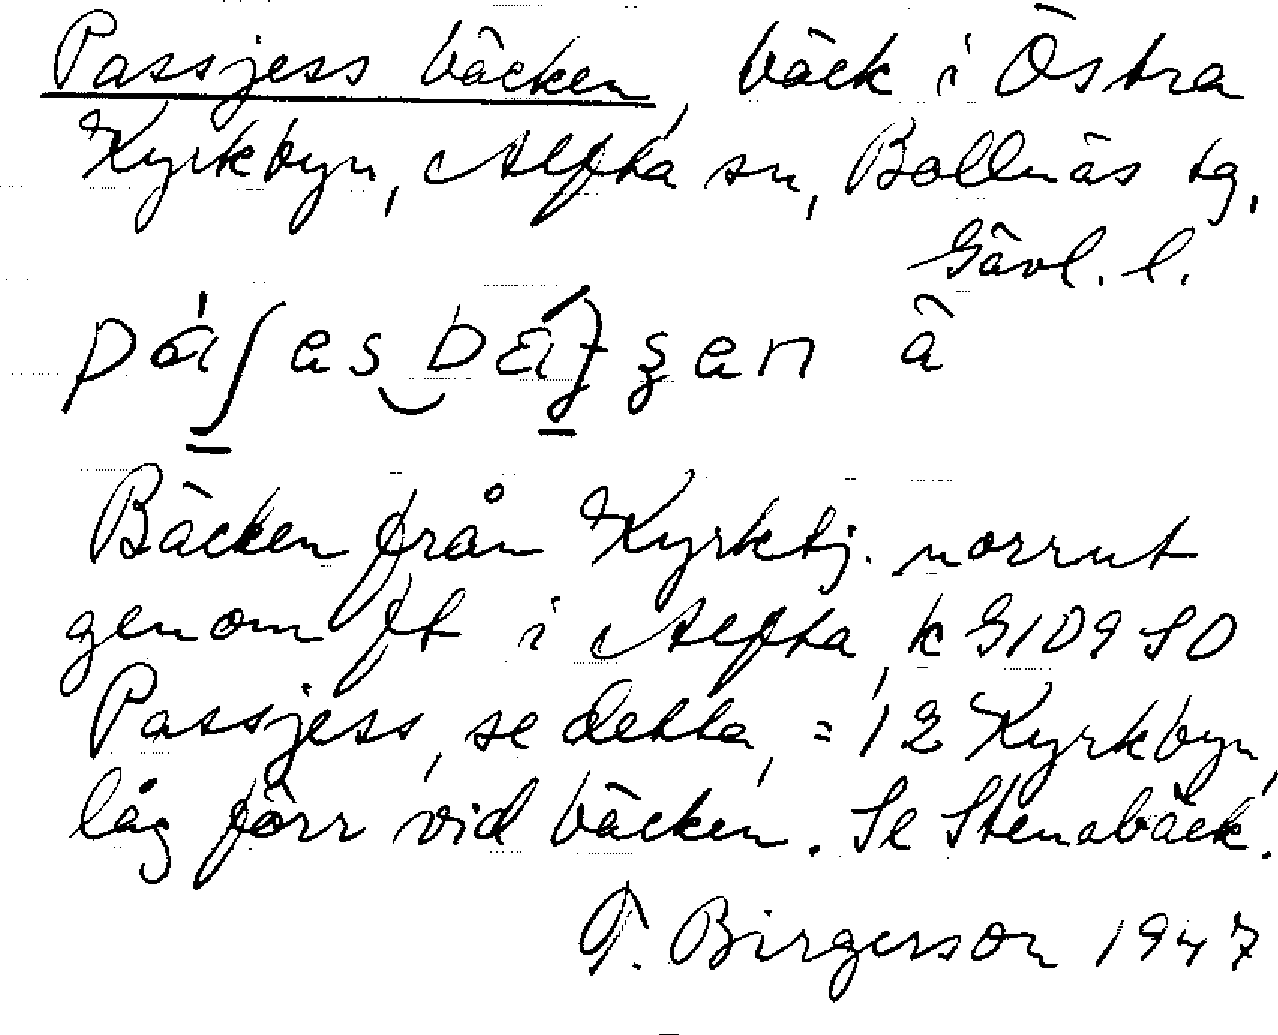 Passjess bäcken, bäck i Östra
Kyrkbyn, Alfta sn, Bollnäs tg,
Gävl. l.
Bäcken från Kyrktj. norrut
genom ft i Alfta, k G109 SO
Passjess, se detta, = 12 Kyrkbyn,
låg förr vid bäcken. Se Stenabäck.
T. Birgerson 1947